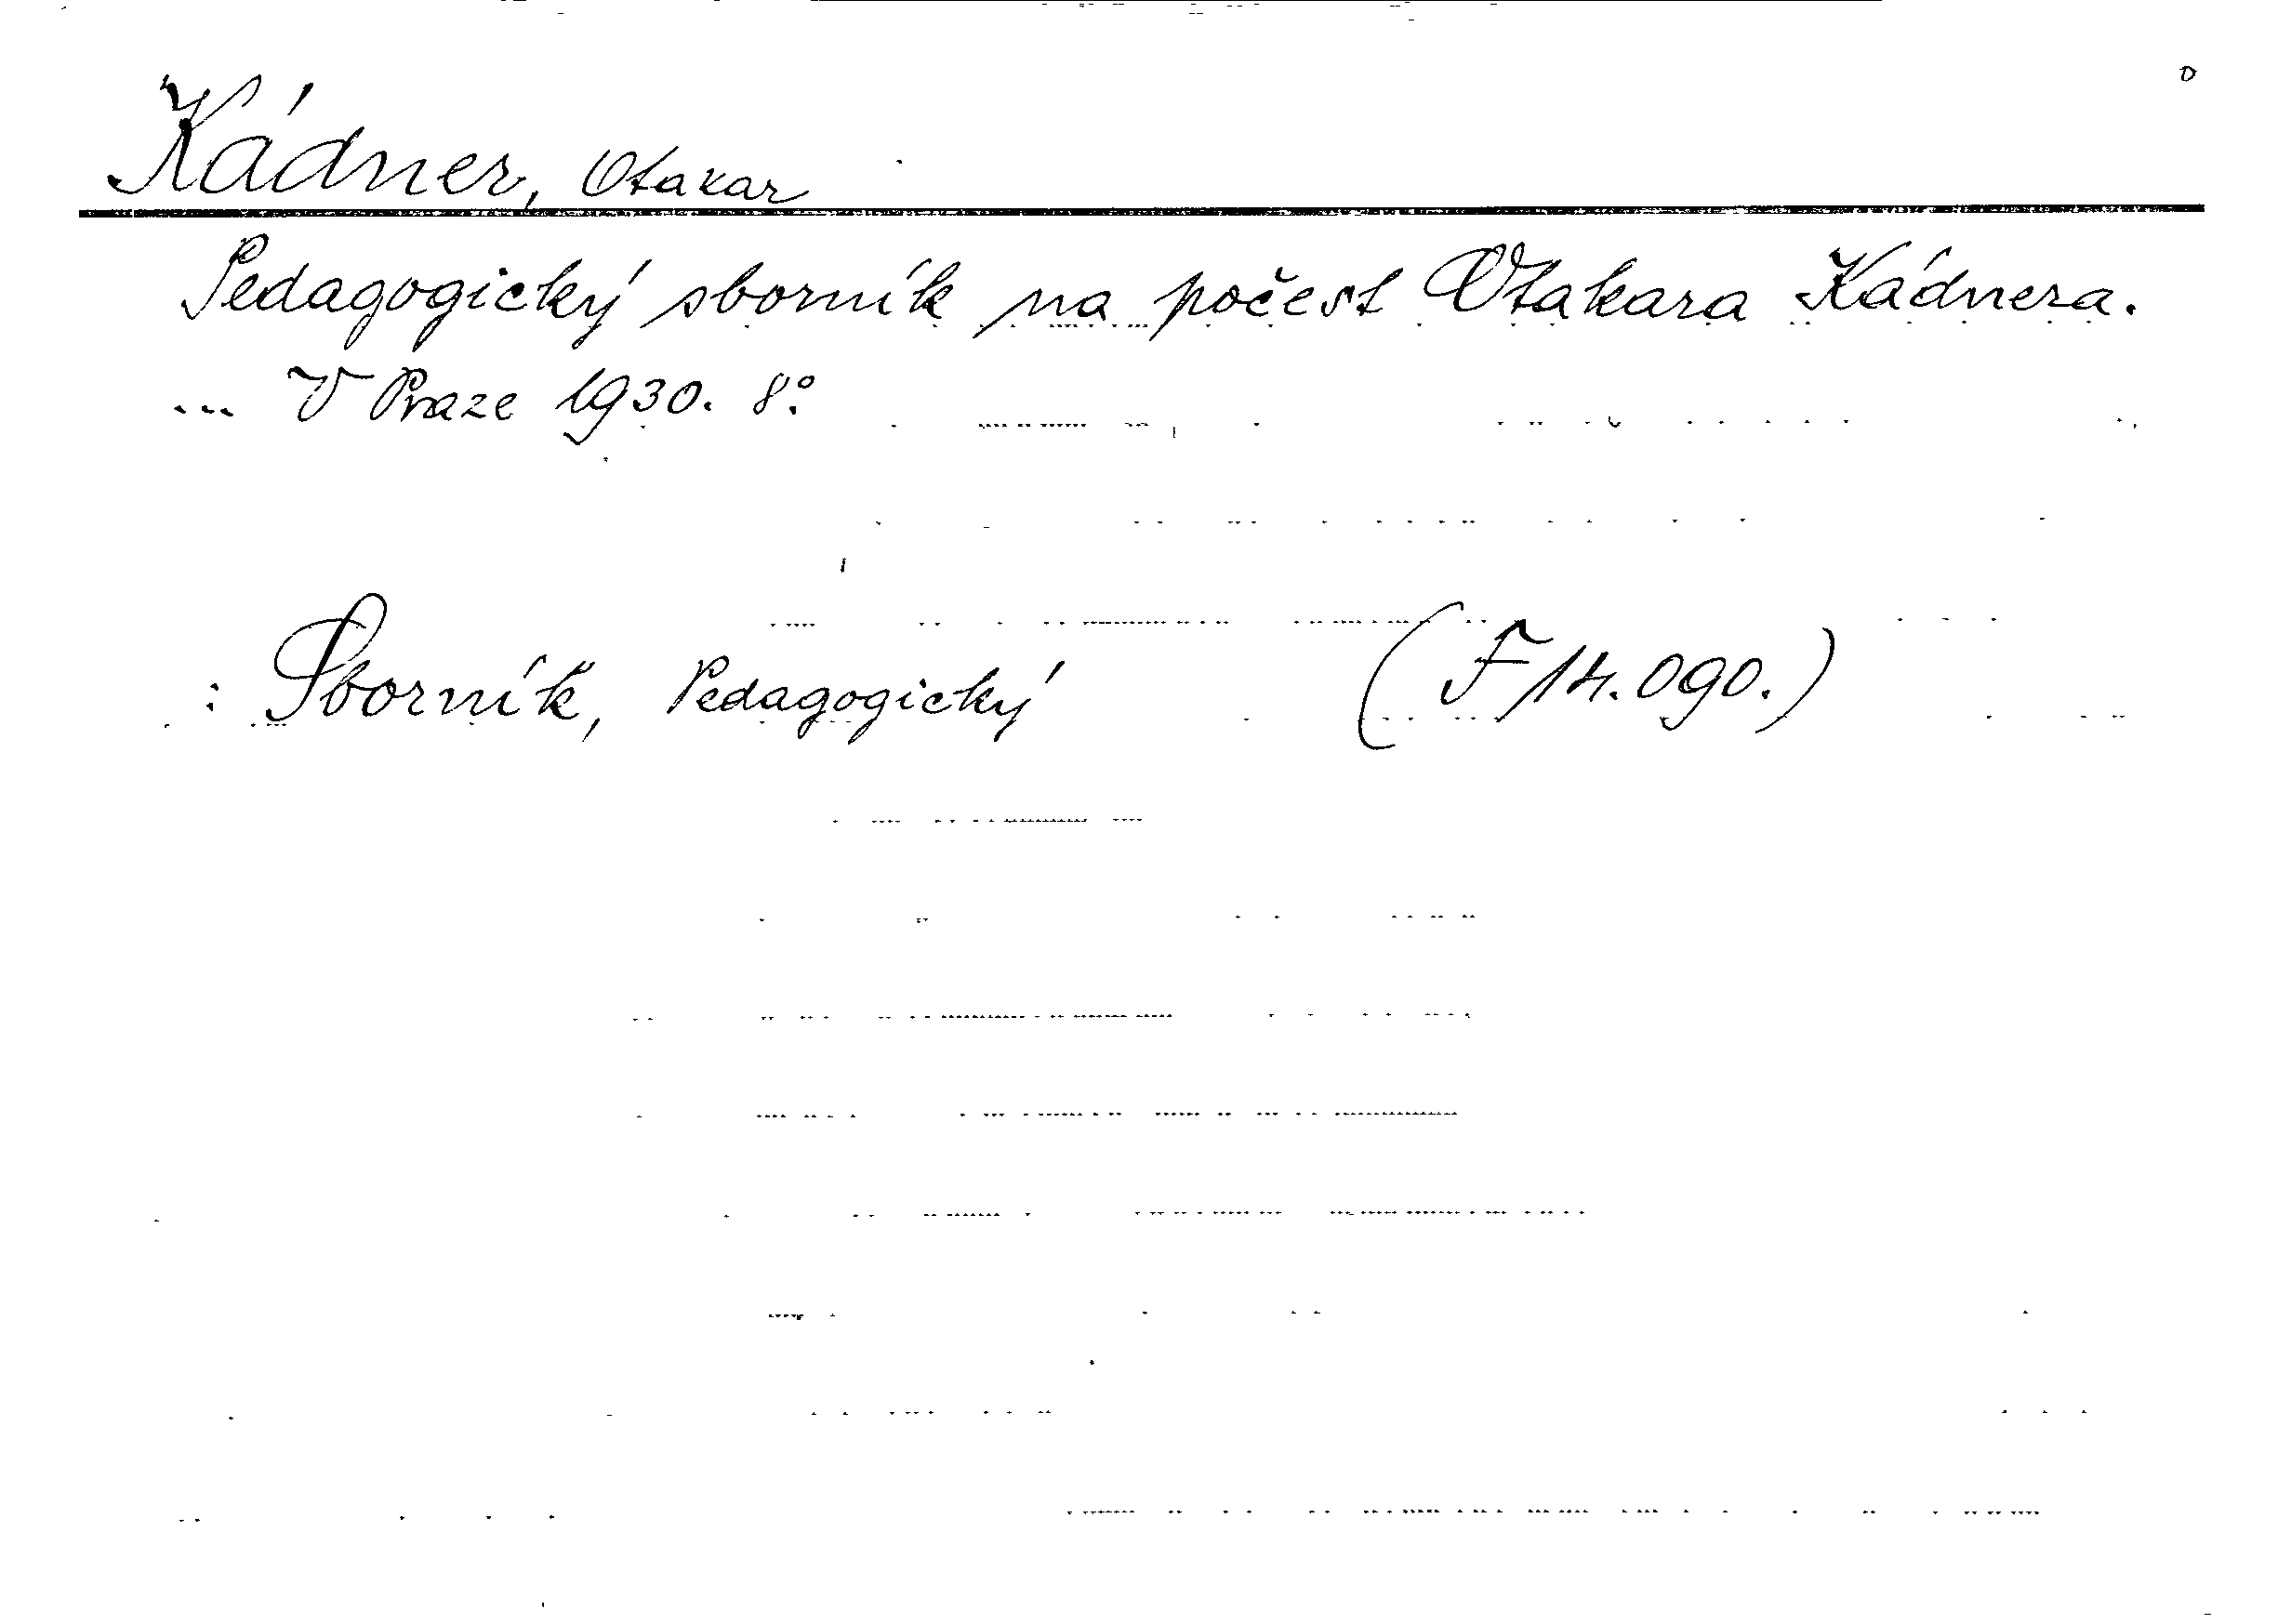 Kádner, Otakar
Pedagogický sborník na počest Otakara Kádnera.
... V Praze 1930. 8°.
: Sborník, Pedagogický (F 14.090.)